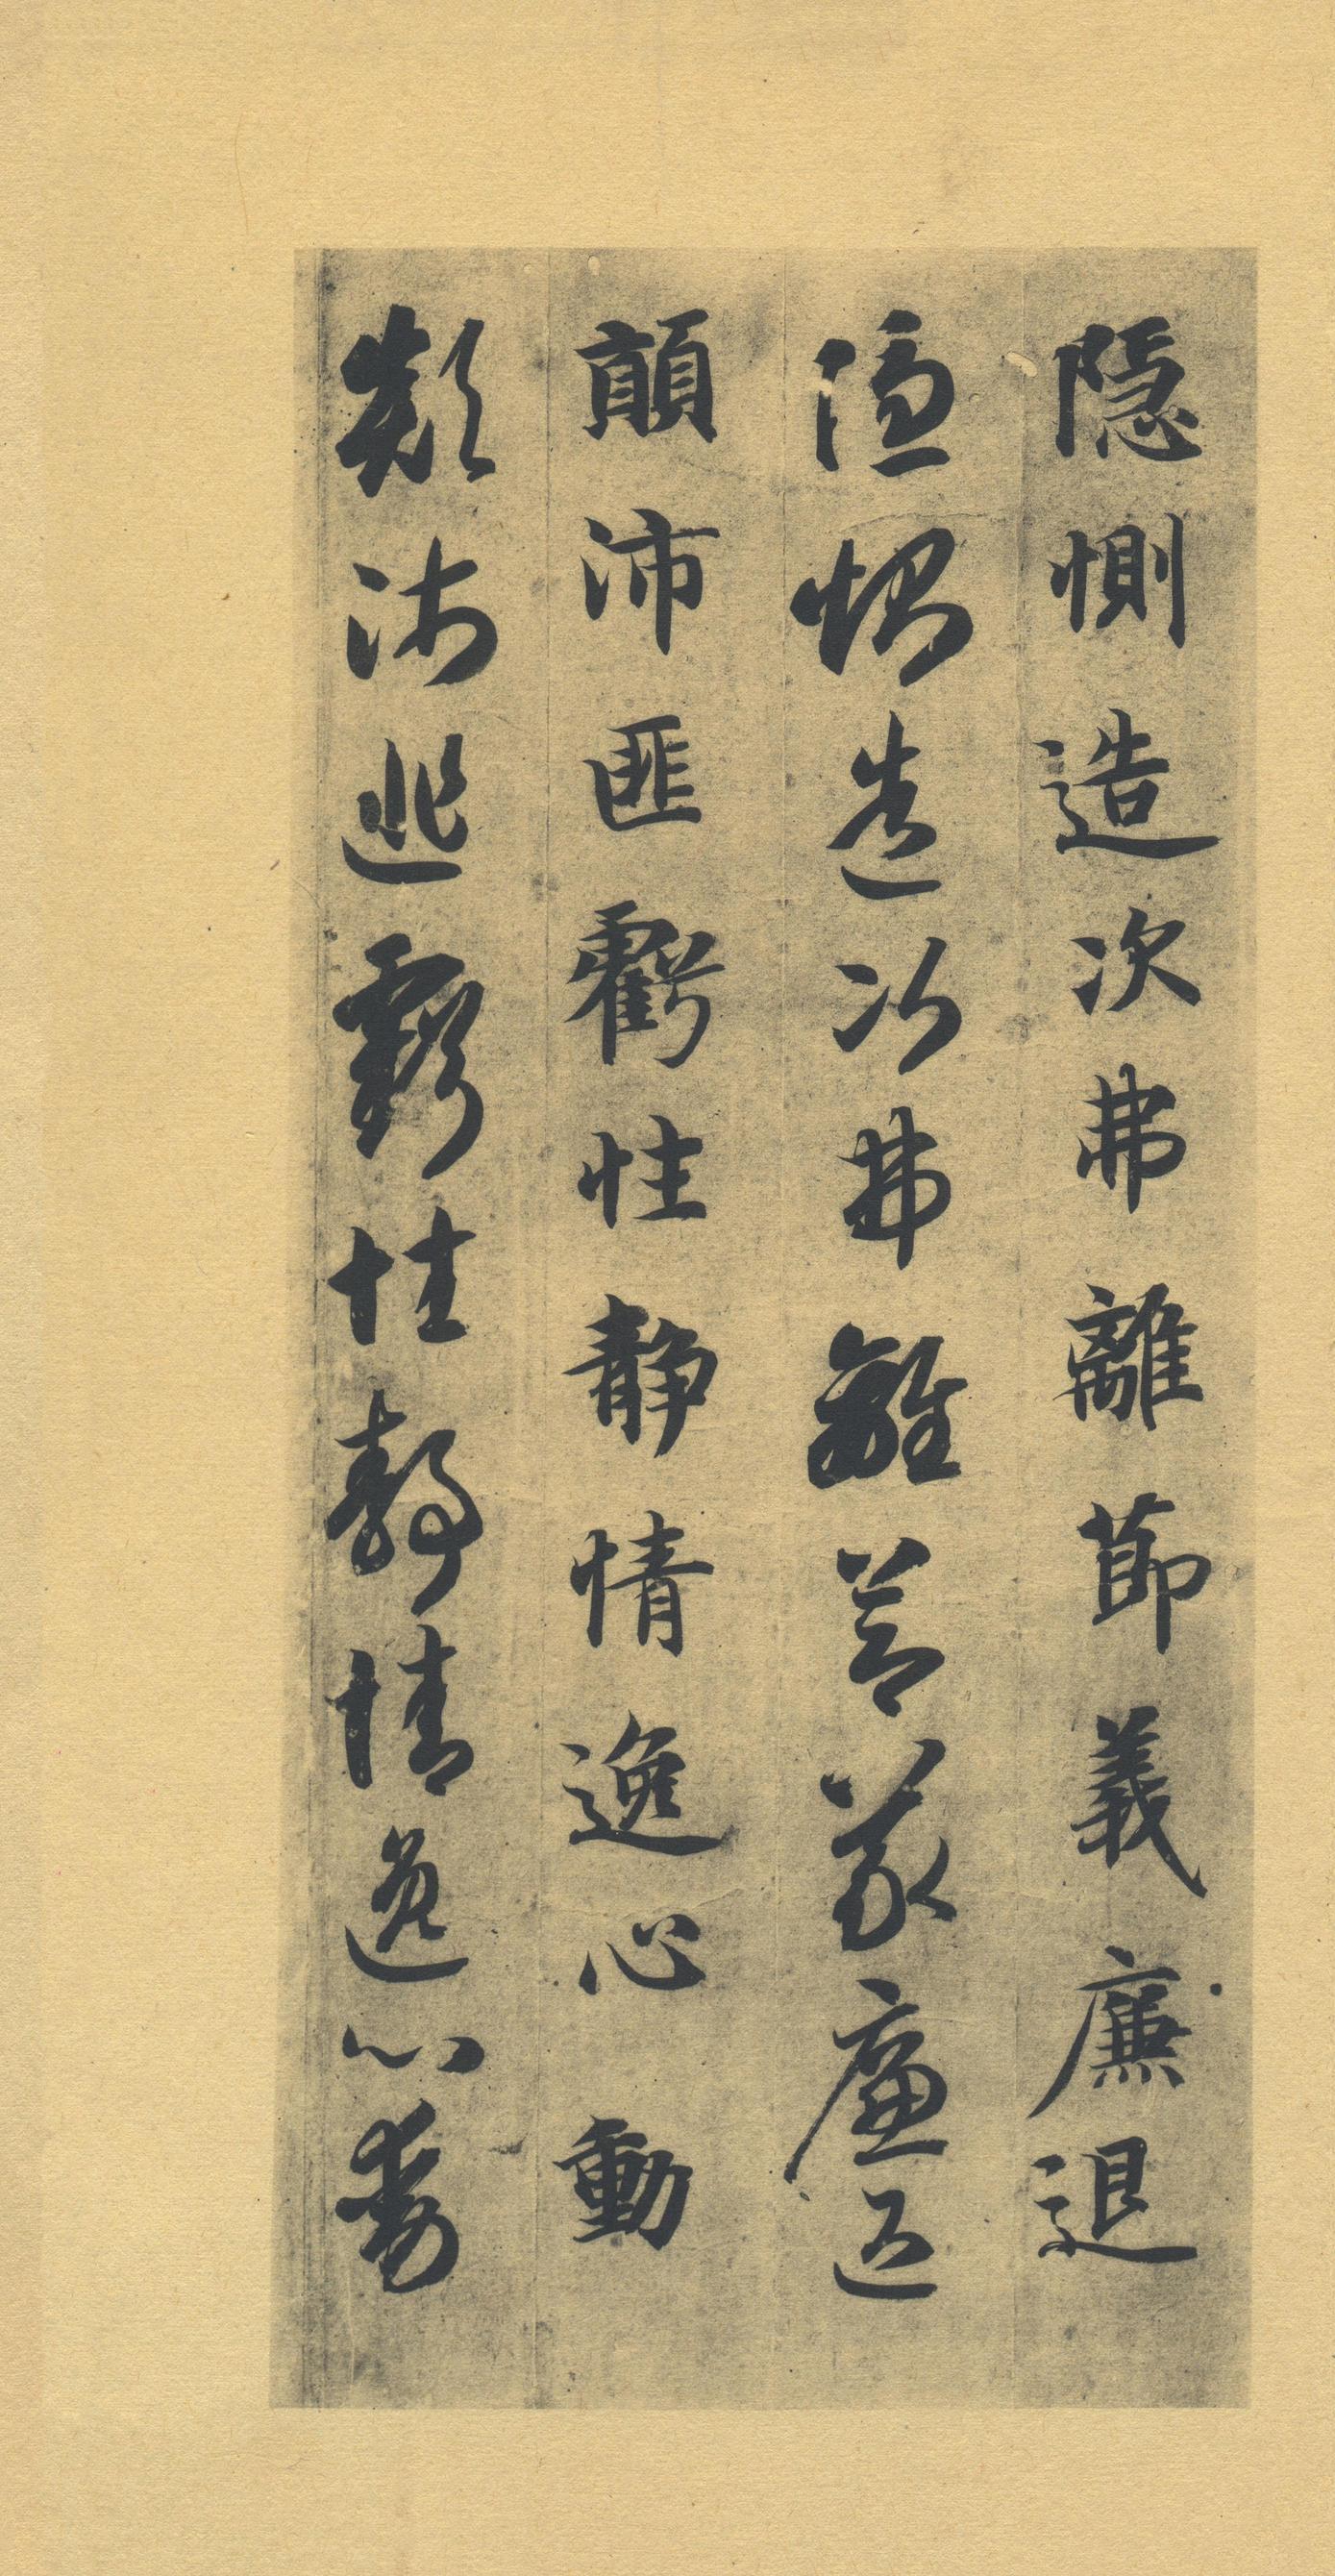 隱惻造次弗離節義廉退
隱惻造次弗離節義廉退
顛沛匪虧性静情逸心動
顛沛匪虧性静情逸心動